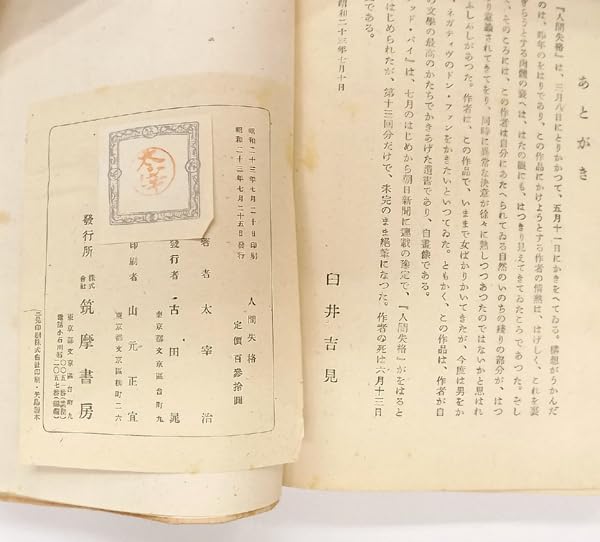 あとがき
『人間失格』は、三月八日にとりかかつて、五月十一日にかきをへてゐる。構想がうかんだ
のは、昨年のをはりであり、この作品にかけようとする作者の情熱は、はげしく、これを裏
ぎらうとする肉體の衰へは、はたの眼にも、はつきり見えてきてゐたころであつた。そし
て、そのころには、この作者は自分にあたへられてゐる自然のいのちの殘りの部分が、はつ
きり意識されてきてをり、同時に異常な決意が徐々に熟しつつあつたのではないかと思はれ
るふしぶしがあつた。作者は、この作品で、いままで女ばかりかいてきたが、今度は男をか
く、ネガティヴのドン・ファンをかきたいといつてゐた。ともかく、この作品は、作者が自
の文學の最高のかたちでかきあげた遺書であり、自畫像である。
ッド・バイ』は、七月のはじめから朝日新聞に連載の豫定で、『人間失格』がをはると
はじめられたが、第十三回分だけで、未完のまま絕筆になつた。作者の死は六月十三日
である。
昭和二十三年七月十日
臼井吉見
人間失格
定價百參拾圓
昭和二十三年七月二十日印刷
昭和二十三年七月二十五日發行
太宰
著者 太宰治
發行者 古田晁
東京都文京區台町九
印刷者 山元正宜
東京都文京區柳町二六
發行所 株式會社 筑摩書房
東京都文京區台町九